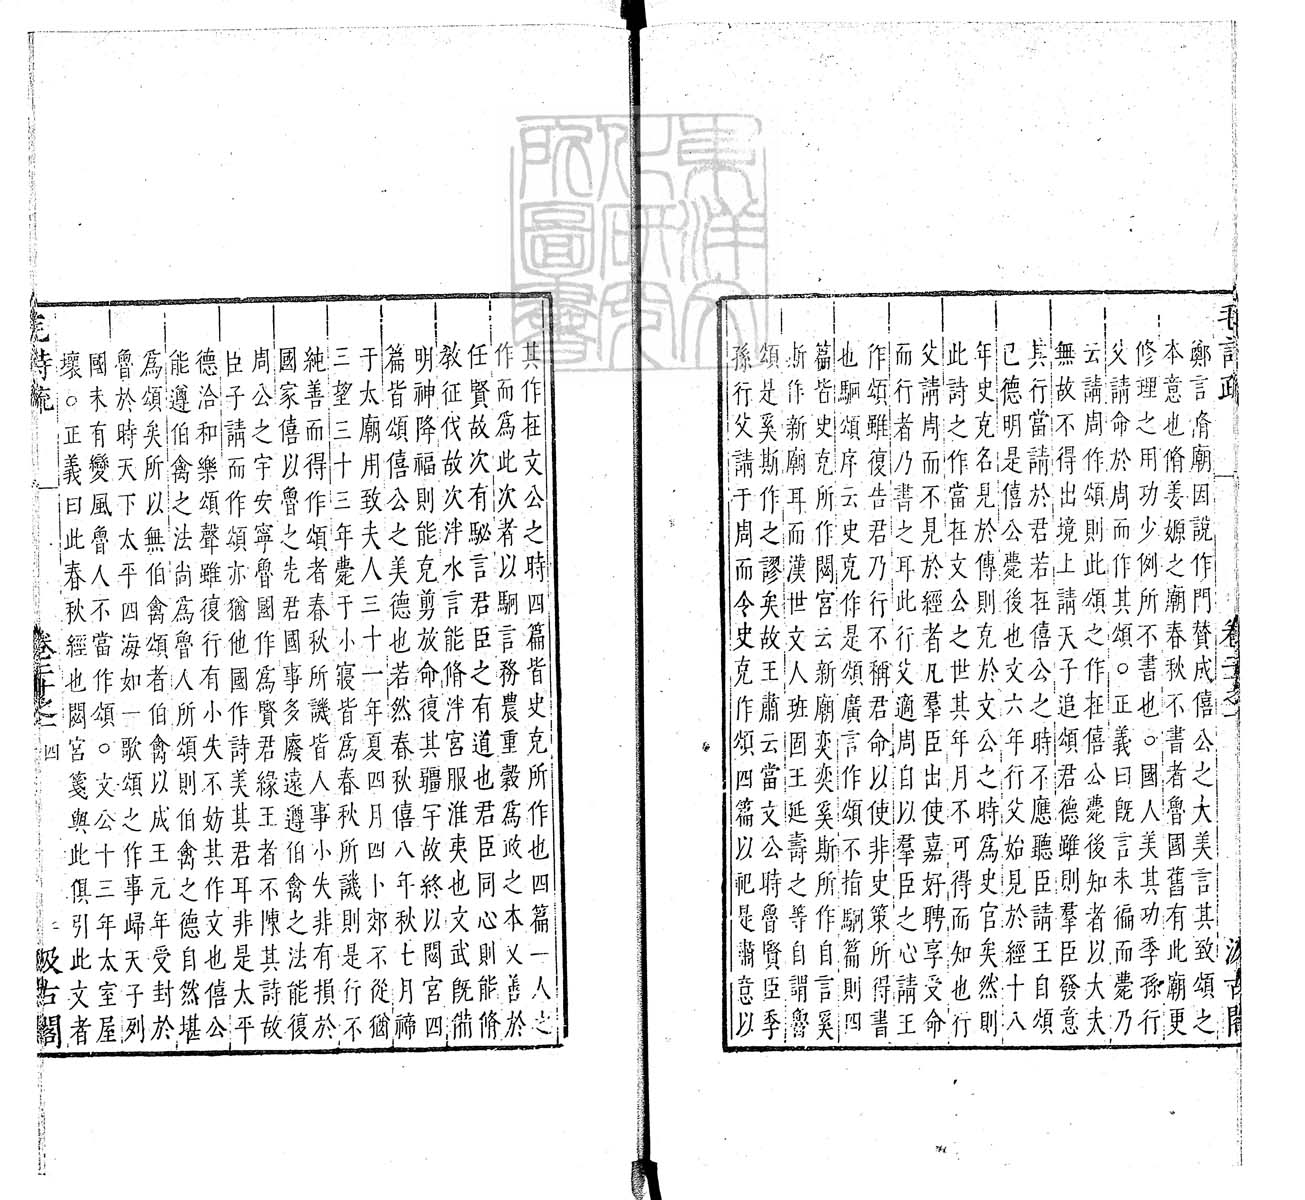 鄭言脩廟因說作門賛成僖公之大美言其致頌之
本意也脩姜嫄之廟春秋不書者魯國舊有此廟更
修理之用功少例所不書也○國人美其功季孫行
父請命於周而作其頌○正義曰旣言未徧而薨乃
云請周作頌則此頌之作在僖公薨後知者以大夫
無故不得出境上請天子追頌君德雖則羣臣發意
其行當請於君若在僖公之時不應聽臣請王自頌
已德明是僖公薨後也文六年行父始見於經十八
年史克名見於傳則克於文公之時爲史官矣然則
此詩之作當在文公之世其年月不可得而知也行
父請周而不見於經者凡羣臣出使嘉好聘享受命
而行者乃書之耳此行父適周自以羣臣之心請王
作頌雖復告君乃行不稱君命以使非史策所得書
也駉頌序云史克作是頌廣言作頌不指駉篇則四
篇皆史克所作閟宮云新廟奕奕奚斯所作自言奚
斯作新廟耳而漢世文人班固王延壽之等自謂魯
頌是奚斯作之謬矣故王肅云當文公時魯賢臣季
孫行父請于周而令史克作頌四篇以祀是肅意以
毛詩疏
卷二十之一
汲古閣
其作在文公之時四篇皆史克所作也四篇一人之
作而爲此次者以駉言務農重穀爲政之本又善於
任賢故次有駜言君臣之有道也君臣同心則能脩
敎征伐故次泮水言能脩泮宮服淮夷也文武旣備
明神降福則能克剪放命復其疆宇故終以閟宮四
篇皆頌僖公之美德也若然春秋僖八年秋七月禘
于太廟用致夫人三十一年夏四月四卜郊不從猶
三望三十三年薨于小寢皆爲春秋所譏則是行不
純善而得作頌者春秋所譏皆人事小失非有損於
國家僖以魯之先君國事多廢遠遵伯禽之法能復
周公之宇安寧魯國作爲賢君緣王者不陳其詩故
臣子請而作頌亦猶他國作詩美其君耳非是太平
德洽和樂頌聲雖復行有小失不妨其作文也僖公
能遵伯禽之法尚爲魯人所頌則伯禽之德自然堪
爲頌矣所以無伯禽頌者伯禽以成王元年受封於
魯於時天下太平四海如一歌頌之作事歸天子列
國未有變風魯人不當作頌○文公十三年太室屋
壞○正義曰此春秋經也閟宮箋與此俱引此文者
毛詩疏
卷二十之一
四
汲古閣
東洋文
化研究
所圖書